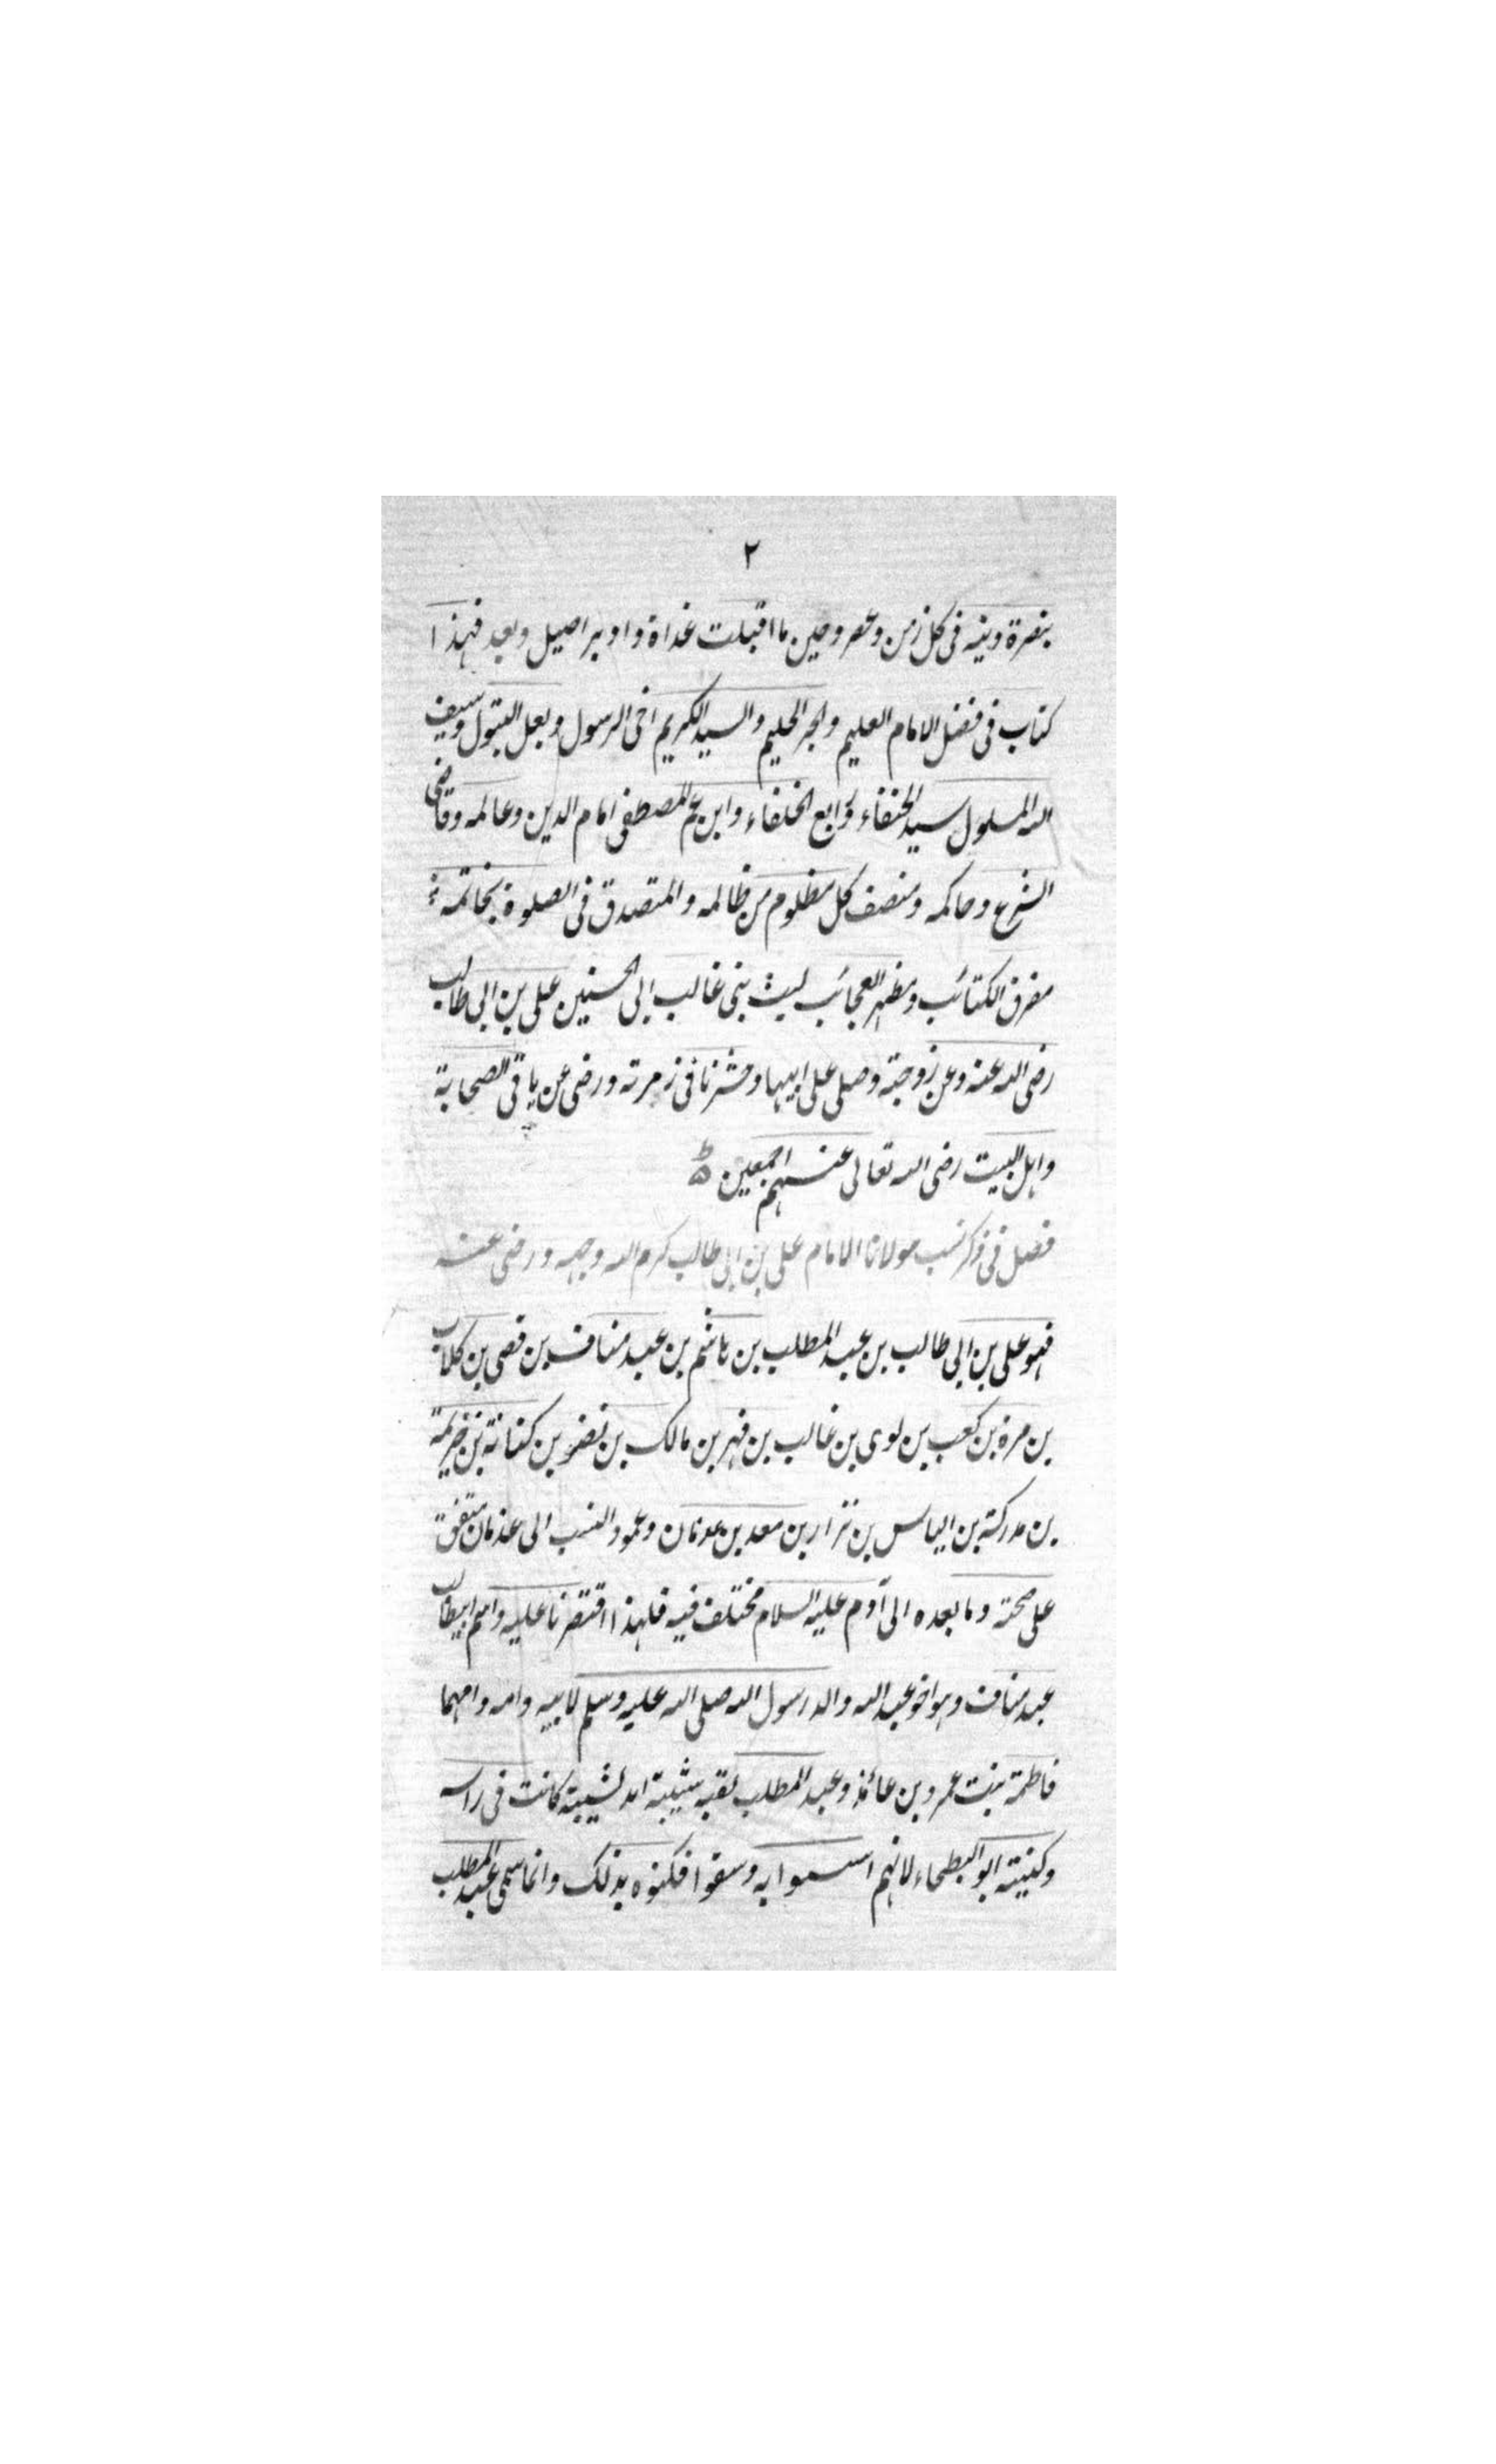 ٢
بنصرة دينه فى كل زمن وعصر وحين ما اقبلت غداة وادبر اصيل وبعد فهذا
كتاب فى فضل الامام العليم والحبر الحليم والسيد الكريم اخى الرسول وبعل البتول وسيف
الله المسلول سيد الحنفاء ورابع الخلفاء وابن عم المصطفى امام الدين وعالمه وقاضى
الشرع وحاكمه ومنصف كل مظلوم من ظالمه والمتصدق فى الصلوة بخاتمه
مفرق الكتائب ومظهر العجائب ليث بنى غالب ابى الحسنين على بن ابى طالب
رضى الله عنه وعن زوجته وصلى على ابيها وحشرنا فى زمرته ورضى عن باقى الصحابة
واهل البيت رضى الله تعالى عنهم اجمعين
فصل فى ذكر نسب مولانا الامام على بن ابى طالب كرم الله وجهه ورضى عنه
فهو على بن ابى طالب بن عبد المطلب بن هاشم بن عبد مناف بن قصى بن كلاب
بن مرة بن كعب بن لوى بن غالب بن فهر بن مالك بن نضر بن كنانة بن خزيمة
بن مدركة بن الياس بن نزار بن معد بن عدنان وعمود النسب الى عدنان متفق
على صحته وما بعده الى آدم عليه السلام مختلف فيه فلهذا اقتصرنا عليه واسم ابيطالب
عبد مناف وهو اخو عبد الله والد رسول الله صلى الله عليه وسلم لابيه وامه وامهما
فاطمة بنت عمرو بن عائذ وعبد المطلب لقبه شيبة الحمد لشيبة كانت فى راسه
وكنيته ابو البطحاء لانهم استسقوا به وسقوا فكنوه بذلك وانما سمى عبد المطلب